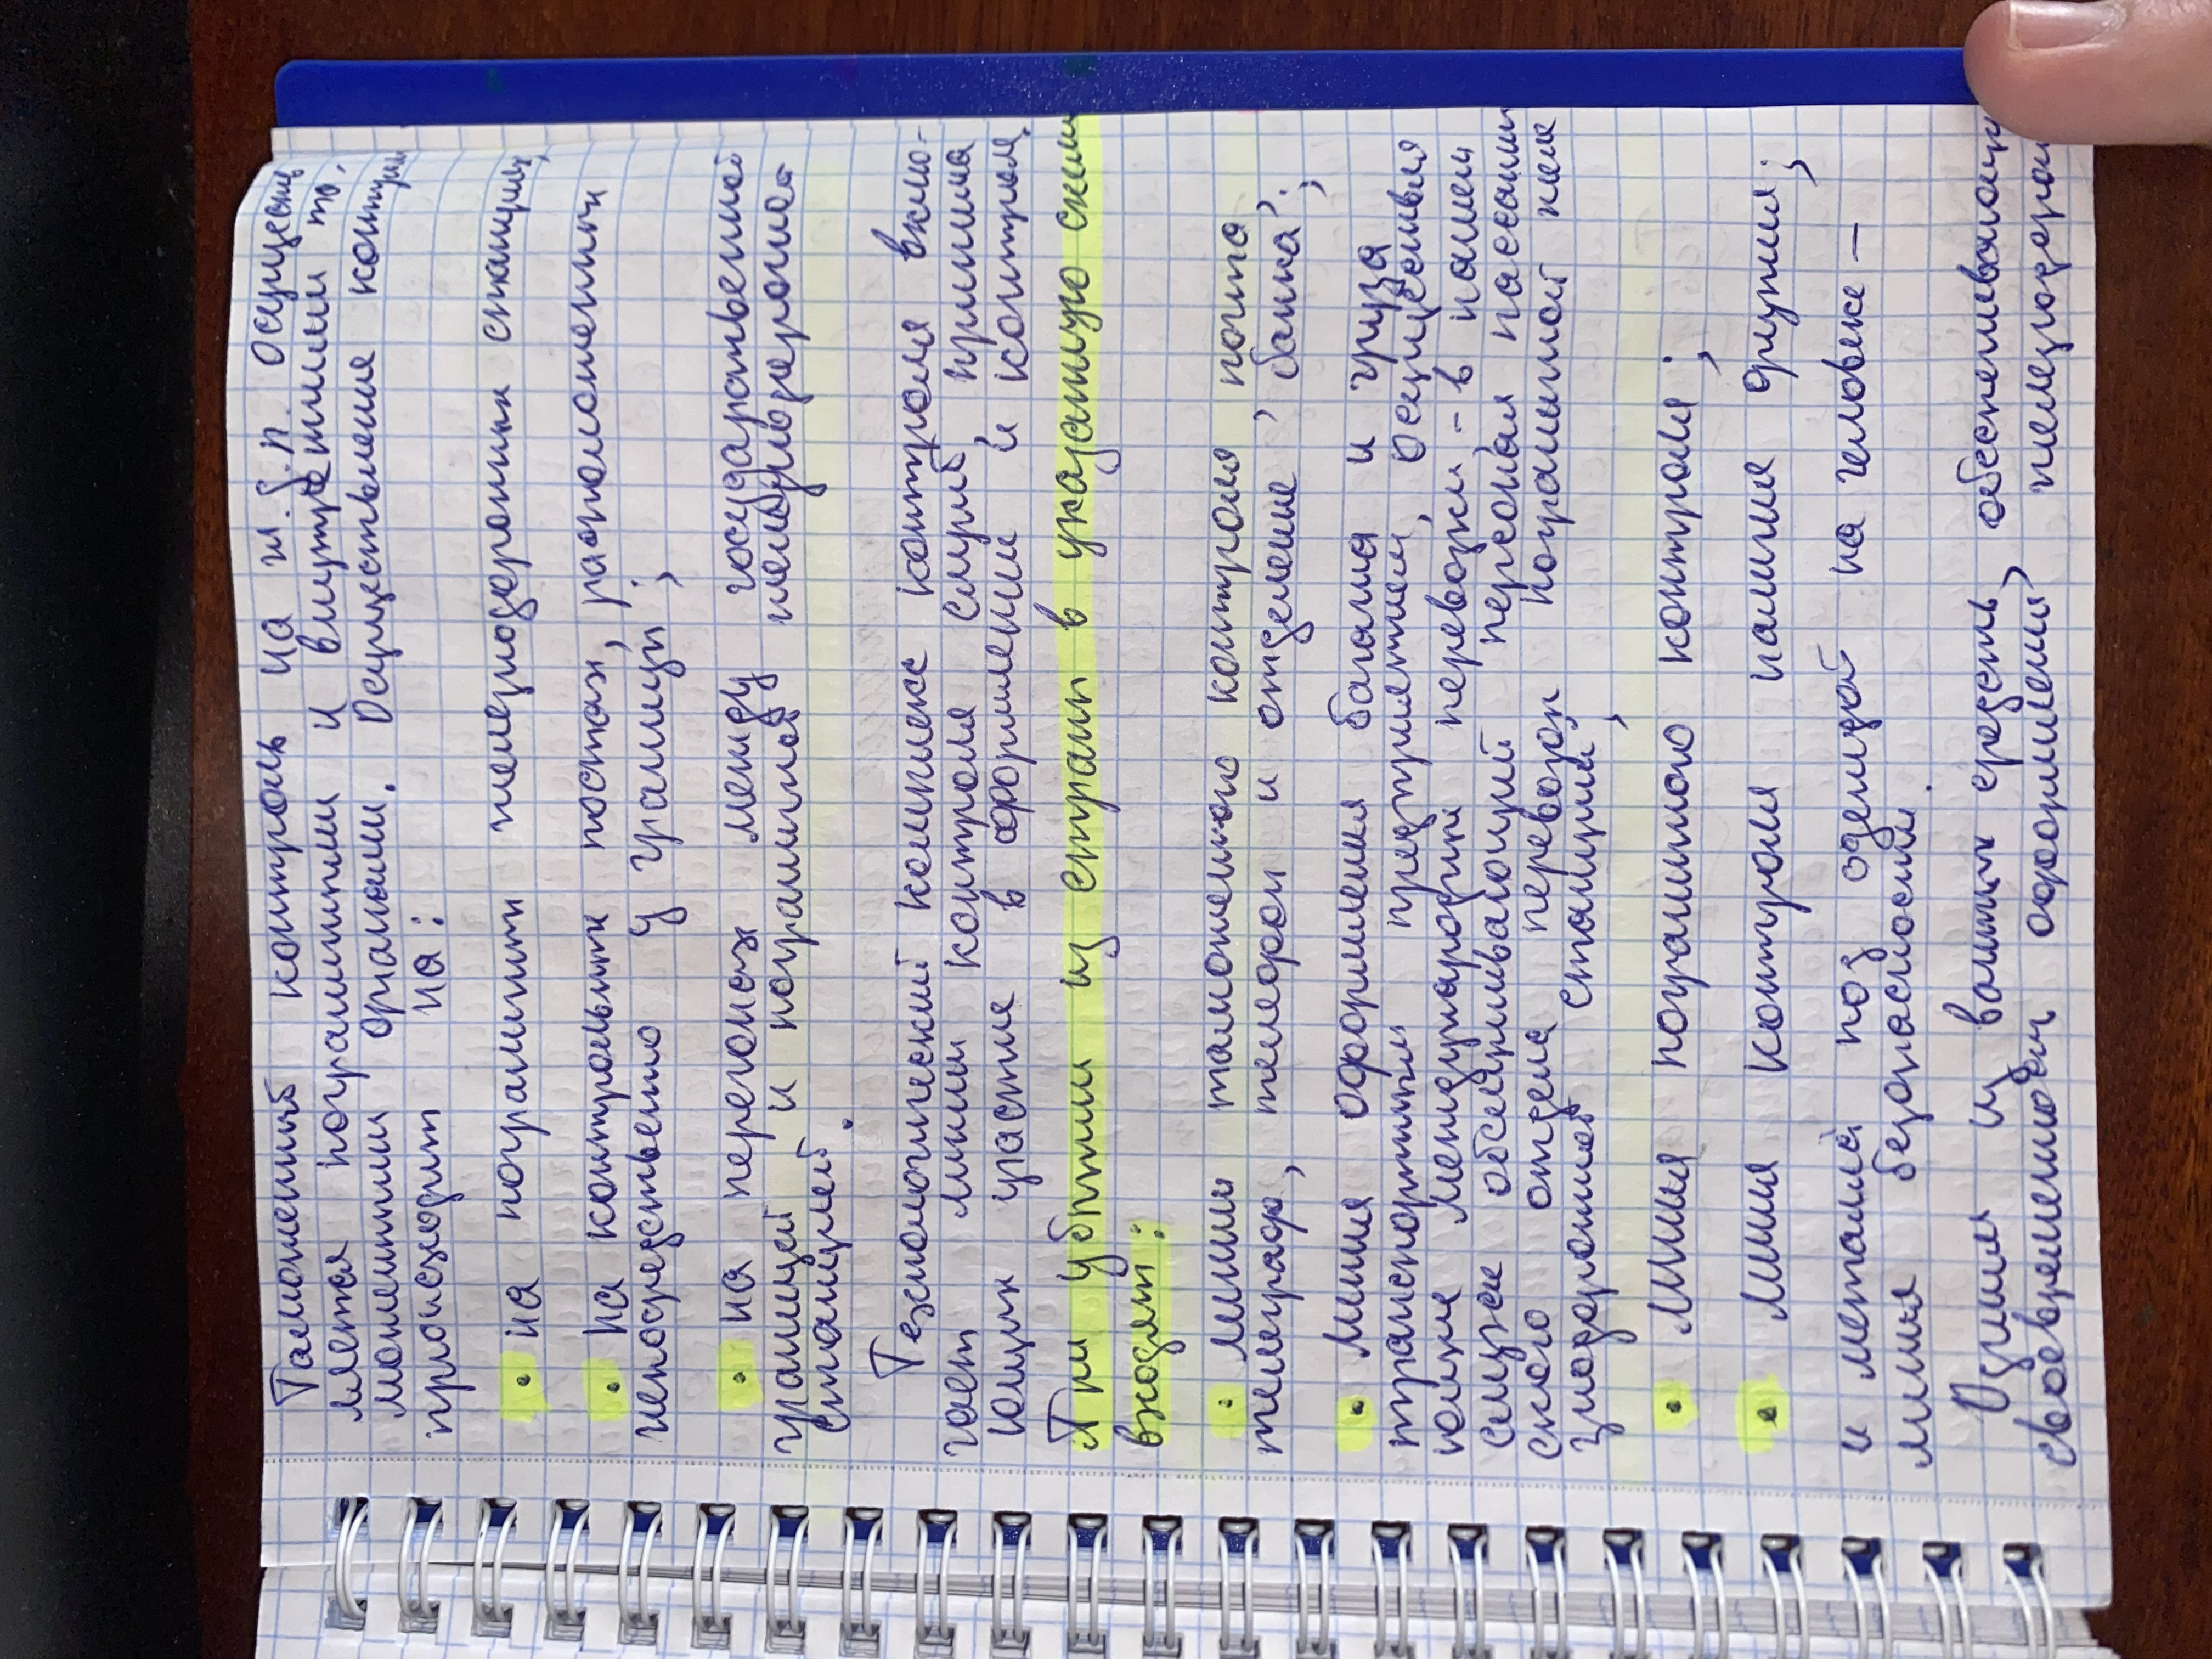 Таможенный контроль на ж.д.п. осуществ
ляется пограничными и внутренними та-
моженными органами. Осуществление контроля
происходит на:
• на пограничных железнодорожных станциях,
• на контрольных постах, расположенных
непосредственно у границы;
• на перегонах между государственной
границей и пограничной железнодорожной
станцией.
Технологический комплекс контроля вклю-
чает линии контроля служб, принима
ющих участие в оформлении и контроле.
При убытии из страны в указанную схему
входят:
• линии таможенного контроля, почта
телеграф, телефон и отделение "банка";
• линия оформления багажа и груза
транспортным предприятием, осуществля
ющие международные перевозки - в нашем
случае обслуживающий персонал пассажир
ского отдела перевозок пограничной желе
знодорожной станции;
• линия пограничного контроля;
• линия контроля наличия оружия;
и металла под одеждой на человеке —
линия безопасности.
Одним из важных средств, обеспечивающих
своевременность оформления железнодорож